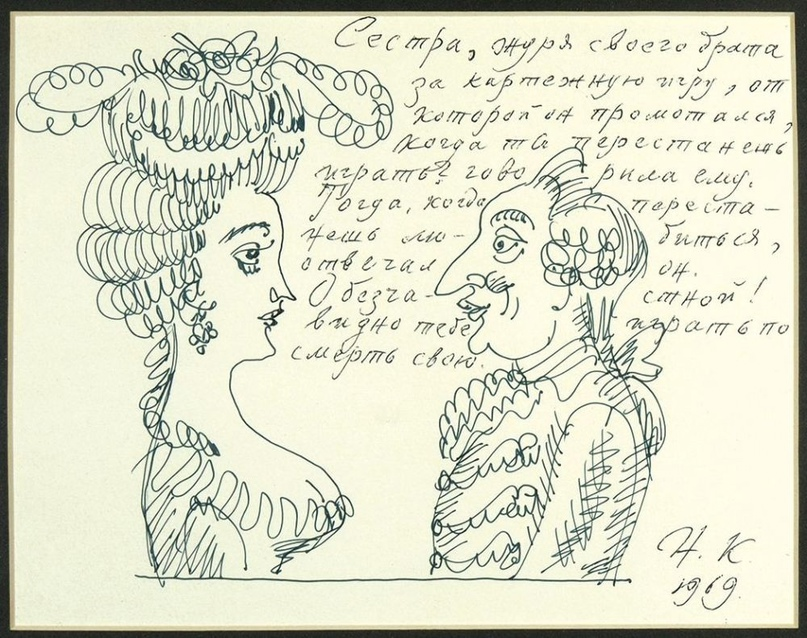 Сестра, журя своего брата
за картежную игру, от
которой он промотался,
когда ты перестанешь
играть? гово рила ему.
Тогда, когда переста-
нешь лю- биться,
отвечал он.
О безча- стной!
видно тебе играть по
смерть свою.
Н. К.
1969.